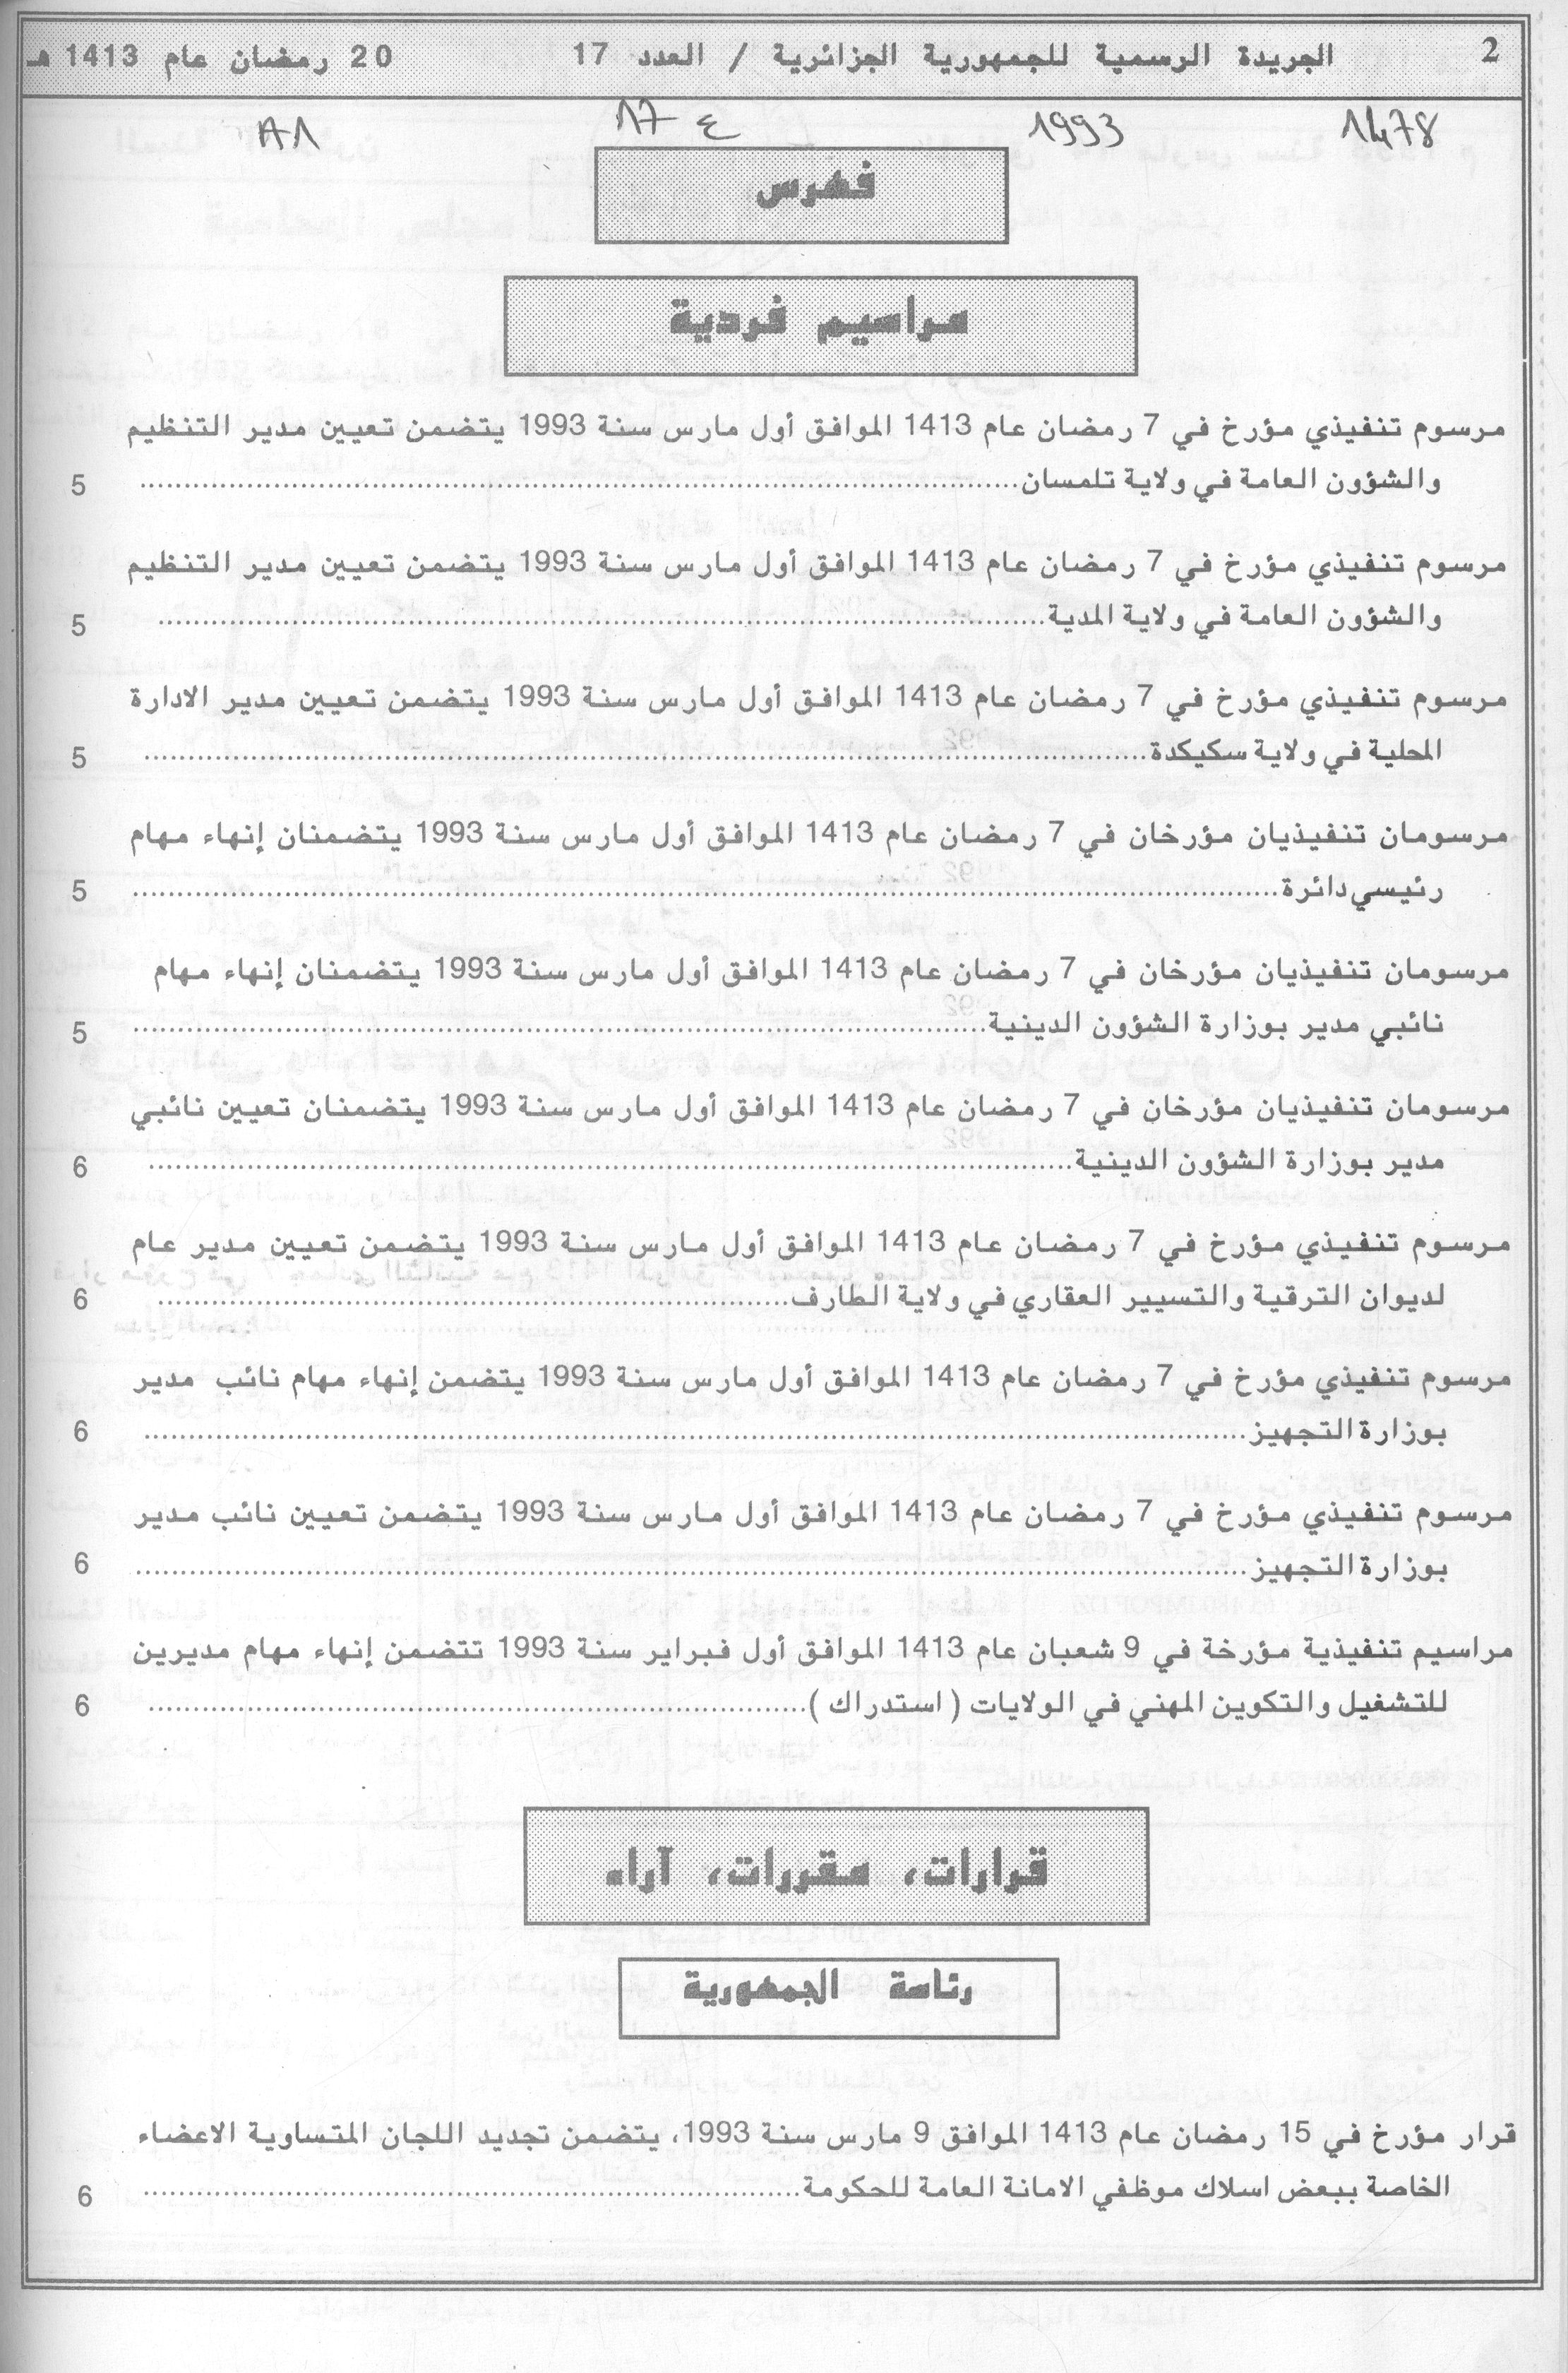 2 الجريدة الرسمية للجمهورية الجزائرية / العدد 17 20 رمضان عام 1413 هـ
1478 1993 ع 17 A1
فهرس
مراسيم فردية
مرسوم تنفيذي مؤرخ في 7 رمضان عام 1413 الموافق أول مارس سنة 1993 يتضمن تعيين مدير التنظيم
والشؤون العامة في ولاية تلمسان.................... 5
مرسوم تنفيذي مؤرخ في 7 رمضان عام 1413 الموافق أول مارس سنة 1993 يتضمن تعيين مدير التنظيم
والشؤون العامة في ولاية المدية.................... 5
مرسوم تنفيذي مؤرخ في 7 رمضان عام 1413 الموافق أول مارس سنة 1993 يتضمن تعيين مدير الادارة
المحلية في ولاية سكيكدة.................... 5
مرسومان تنفيذيان مؤرخان في 7 رمضان عام 1413 الموافق أول مارس سنة 1993 يتضمنان إنهاء مهام
رئيسي دائرة.................... 5
مرسومان تنفيذيان مؤرخان في 7 رمضان عام 1413 الموافق أول مارس سنة 1993 يتضمنان إنهاء مهام
نائبي مدير بوزارة الشؤون الدينية.................... 5
مرسومان تنفيذيان مؤرخان في 7 رمضان عام 1413 الموافق أول مارس سنة 1993 يتضمنان تعيين نائبي
مدير بوزارة الشؤون الدينية.................... 6
مرسوم تنفيذي مؤرخ في 7 رمضان عام 1413 الموافق أول مارس سنة 1993 يتضمن تعيين مدير عام
لديوان الترقية والتسيير العقاري في ولاية الطارف.................... 6
مرسوم تنفيذي مؤرخ في 7 رمضان عام 1413 الموافق أول مارس سنة 1993 يتضمن إنهاء مهام نائب مدير
بوزارة التجهيز.................... 6
مرسوم تنفيذي مؤرخ في 7 رمضان عام 1413 الموافق أول مارس سنة 1993 يتضمن تعيين نائب مدير
بوزارة التجهيز.................... 6
مراسيم تنفيذية مؤرخة في 9 شعبان عام 1413 الموافق أول فبراير سنة 1993 تتضمن إنهاء مهام مديرين
للتشغيل والتكوين المهني في الولايات ( استدراك ).................... 6
قرارات، مقررات، آراء
رئاسة الجمهورية
قرار مؤرخ في 15 رمضان عام 1413 الموافق 9 مارس سنة 1993، يتضمن تجديد اللجان المتساوية الاعضاء
الخاصة ببعض اسلاك موظفي الامانة العامة للحكومة.................... 6